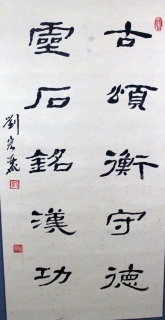 古頌衡守德
靈石銘漢功
劉炳森